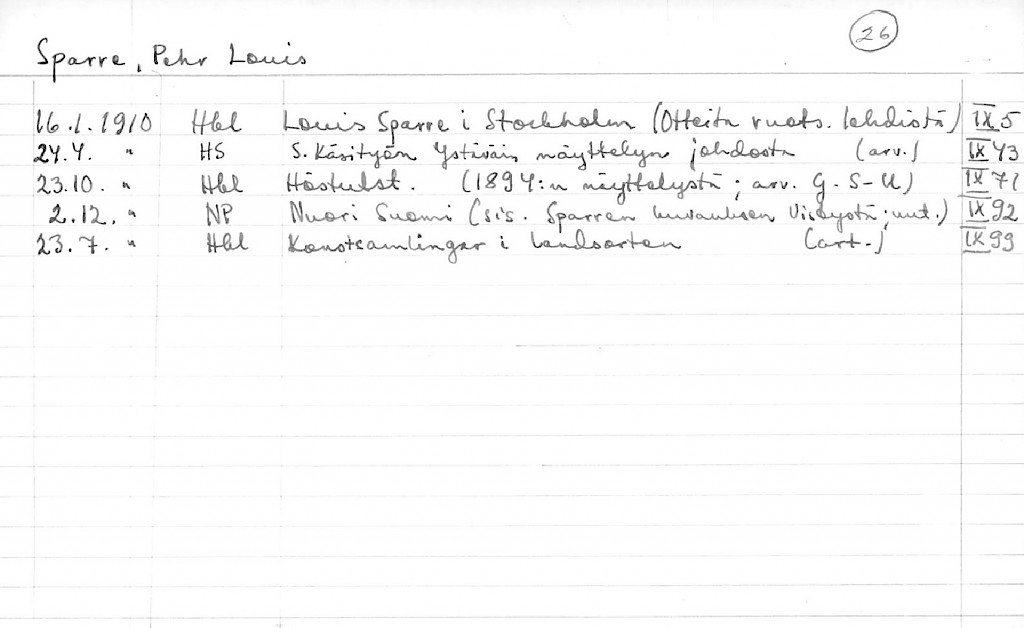 26
Sparre, Pehr Louis
16.1.1910 Hbl Louis Sparre i Stockholm (Otteita ruots. lehdistä) IX 5
24.4. " HS S. Käsityön Ystäväin näyttelyn johdosta (arv.) IX 43
23.10. " Hbl Höstutst. (1894:n näyttelystä; arv. G. S-U) IX 71
2.12. " NP Nuori Suomi (sis. Sparren kuvauksen Visbystä; uut.) IX 92
23.7. " Hbl Konstsamlingar i landsorten (art.) IX 99